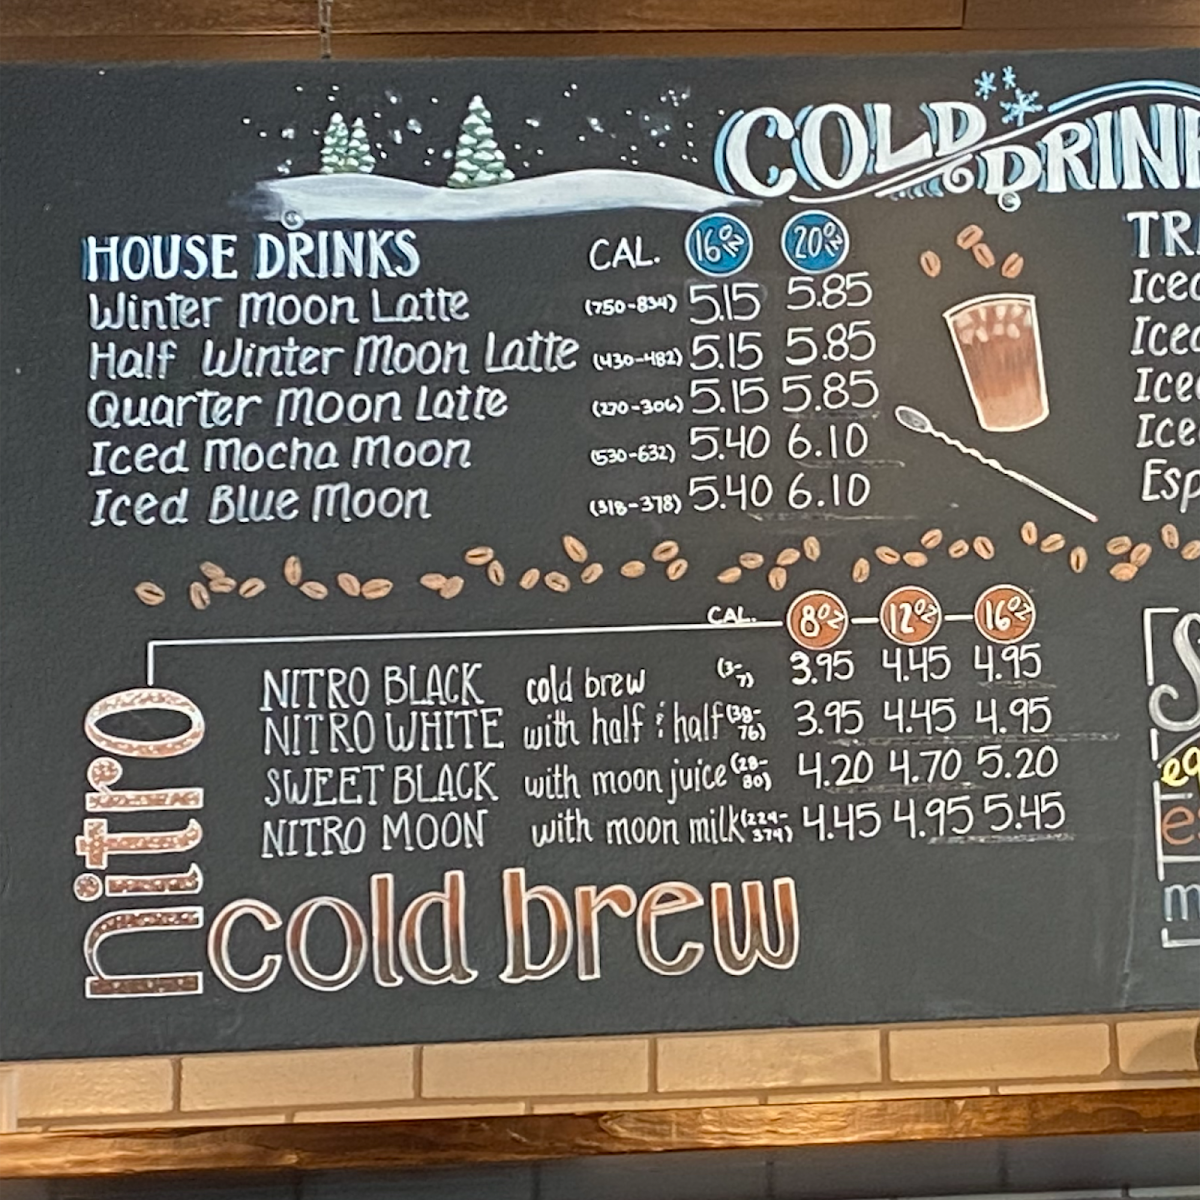 COLD DRIN
HOUSE DRINKS CAL. 16oz 20oz
Winter Moon Latte (750-834) 5.15 5.85
Half Winter Moon Latte (430-482) 5.15 5.85
Quarter Moon Latte (270-306) 5.15 5.85
Iced Mocha Moon (530-632) 5.40 6.10
Iced Blue Moon (318-378) 5.40 6.10
TRA
Iced
Iced
Iced
Iced
Esp
CAL. 8oz 12oz 16oz
NITRO BLACK cold brew (3-7) 3.95 4.45 4.95
NITRO WHITE with half & half (38-76) 3.95 4.45 4.95
SWEET BLACK with moon juice (28-80) 4.20 4.70 5.20
NITRO MOON with moon milk (224-374) 4.45 4.95 5.45
nitro
cold brew